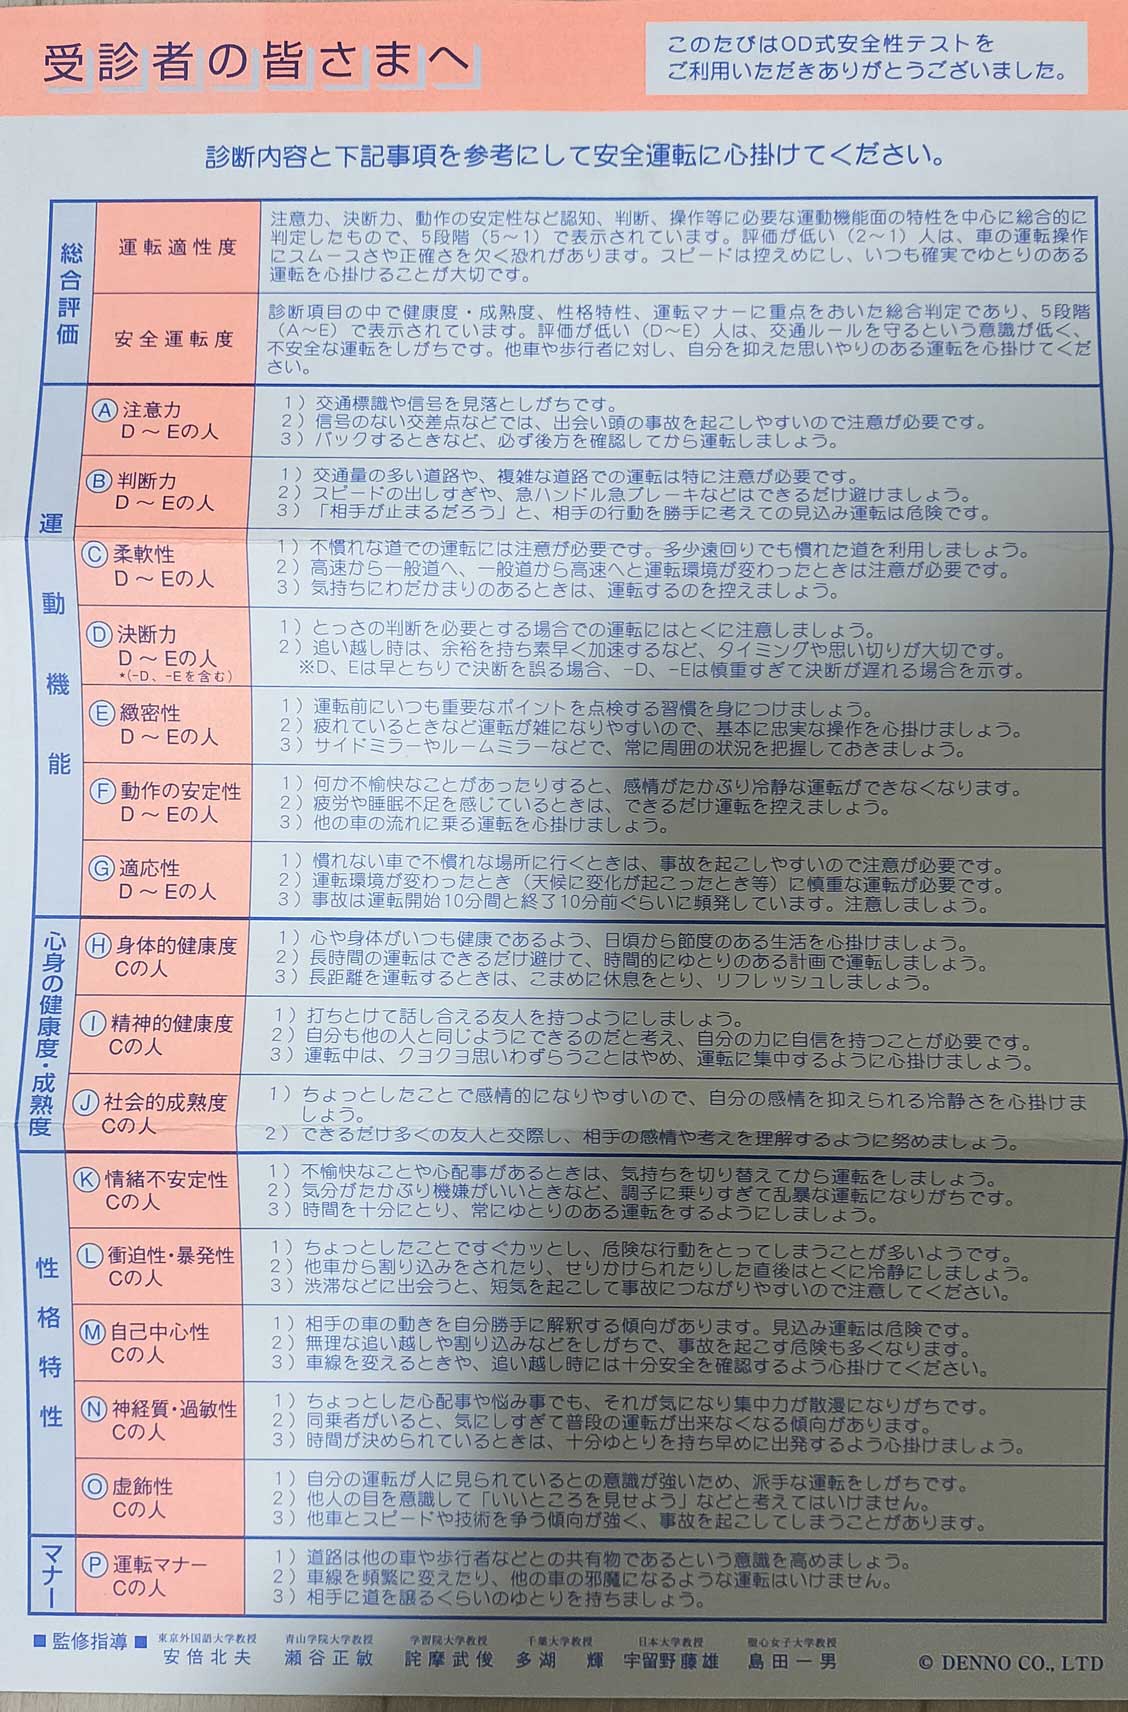 受診者の皆さまへ
このたびはOD式安全性テストを
ご利用いただきありがとうございました。
診断内容と下記事項を参考にして安全運転に心掛けてください。
総合評価
運転適性度
注意力、決断力、動作の安定性など認知、判断、操作等に必要な運動機能面の特性を中心に総合的に
判定したもので、5段階（5〜1）で表示されています。評価が低い（2〜1）人は、車の運転操作
にスムースさや正確さを欠く恐れがあります。スピードは控えめにし、いつも確実でゆとりのある
運転を心掛けることが大切です。
安全運転度
診断項目の中で健康度・成熟度、性格特性、運転マナーに重点をおいた総合判定であり、5段階
（A〜E）で表示されています。評価が低い（D〜E）人は、交通ルールを守るという意識が低く、
不安全な運転をしがちです。他車や歩行者に対し、自分を抑えた思いやりのある運転を心掛けてくだ
さい。
運動機能
Ⓐ 注意力
D 〜 Eの人
1）交通標識や信号を見落としがちです。
2）信号のない交差点などでは、出会い頭の事故を起こしやすいので注意が必要です。
3）バックするときなど、必ず後方を確認してから運転しましょう。
Ⓑ 判断力
D 〜 Eの人
1）交通量の多い道路や、複雑な道路での運転は特に注意が必要です。
2）スピードの出しすぎや、急ハンドル急ブレーキなどはできるだけ避けましょう。
3）「相手が止まるだろう」と、相手の行動を勝手に考えての見込み運転は危険です。
Ⓒ 柔軟性
D 〜 Eの人
1）不慣れな道での運転には注意が必要です。多少遠回りでも慣れた道を利用しましょう。
2）高速から一般道へ、一般道から高速へと運転環境が変わったときは注意が必要です。
3）気持ちにわだかまりのあるときは、運転するのを控えましょう。
Ⓓ 決断力
D 〜 Eの人
*（-D、-Eを含む）
1）とっさの判断を必要とする場合での運転にはとくに注意しましょう。
2）追い越し時は、余裕を持ち素早く加速するなど、タイミングや思い切りが大切です。
※D、Eは早とちりで決断を誤る場合、-D、-Eは慎重すぎて決断が遅れる場合を示す。
Ⓔ 緻密性
D 〜 Eの人
1）運転前にいつも重要なポイントを点検する習慣を身につけましょう。
2）疲れているときなど運転が雑になりやすいので、基本に忠実な操作を心掛けましょう。
3）サイドミラーやルームミラーなどで、常に周囲の状況を把握しておきましょう。
Ⓕ 動作の安定性
D 〜 Eの人
1）何か不愉快なことがあったりすると、感情がたかぶり冷静な運転ができなくなります。
2）疲労や睡眠不足を感じているときは、できるだけ運転を控えましょう。
3）他の車の流れに乗る運転を心掛けましょう。
Ⓖ 適応性
D 〜 Eの人
1）慣れない車で不慣れな場所に行くときは、事故を起こしやすいので注意が必要です。
2）運転環境が変わったとき（天候に変化が起こったとき等）に慎重な運転が必要です。
3）事故は運転開始10分間と終了10分前ぐらいに頻発しています。注意しましょう。
心身の健康度・成熟度
Ⓗ 身体的健康度
Cの人
1）心や身体がいつも健康であるよう、日頃から節度のある生活を心掛けましょう。
2）長時間の運転はできるだけ避けて、時間的にゆとりのある計画で運転しましょう。
3）長距離を運転するときは、こまめに休息をとり、リフレッシュしましょう。
Ⓘ 精神的健康度
Cの人
1）打ちとけて話し合える友人を持つようにしましょう。
2）自分も他の人と同じようにできるのだと考え、自分の力に自信を持つことが必要です。
3）運転中は、クヨクヨ思いわずらうことはやめ、運転に集中するように心掛けましょう。
Ⓙ 社会的成熟度
Cの人
1）ちょっとしたことで感情的になりやすいので、自分の感情を抑えられる冷静さを心掛けま
しょう。
2）できるだけ多くの友人と交際し、相手の感情や考えを理解するように努めましょう。
性格特性
Ⓚ 情緒不安定性
Cの人
1）不愉快なことや心配事があるときは、気持ちを切り替えてから運転をしましょう。
2）気分がたかぶり機嫌がいいときなど、調子に乗りすぎて乱暴な運転になりがちです。
3）時間を十分にとり、常にゆとりのある運転をするようにしましょう。
Ⓛ 衝迫性・暴発性
Cの人
1）ちょっとしたことですぐカッとし、危険な行動をとってしまうことが多いようです。
2）他車から割り込みをされたり、せりかけられたりした直後はとくに冷静にしましょう。
3）渋滞などに出会うと、短気を起こして事故につながりやすいので注意してください。
Ⓜ 自己中心性
Cの人
1）相手の車の動きを自分勝手に解釈する傾向があります。見込み運転は危険です。
2）無理な追い越しや割り込みなどをしがちで、事故を起こす危険も多くなります。
3）車線を変えるときや、追い越し時には十分安全を確認するよう心掛けてください。
Ⓝ 神経質・過敏性
Cの人
1）ちょっとした心配事や悩み事でも、それが気になり集中力が散漫になりがちです。
2）同乗者がいると、気にしすぎて普段の運転が出来なくなる傾向があります。
3）時間が決められているときは、十分ゆとりを持ち早めに出発するよう心掛けましょう。
Ⓞ 虚飾性
Cの人
1）自分の運転が人に見られているとの意識が強いため、派手な運転をしがちです。
2）他人の目を意識して「いいところを見せよう」などと考えてはいけません。
3）他車とスピードや技術を争う傾向が強く、事故を起こしてしまうことがあります。
マナー
Ⓟ 運転マナー
Cの人
1）道路は他の車や歩行者などとの共有物であるという意識を高めましょう。
2）車線を頻繁に変えたり、他の車の邪魔になるような運転はいけません。
3）相手に道を譲るくらいのゆとりを持ちましょう。
■監修指導■
東京外国語大学教授 青山学院大学教授 学習院大学教授 千葉大学教授 日本大学教授 聖心女子大学教授
安倍北夫 瀬谷正敏 詫摩武俊 多湖 輝 宇留野藤雄 島田一男
© DENNO CO., LTD